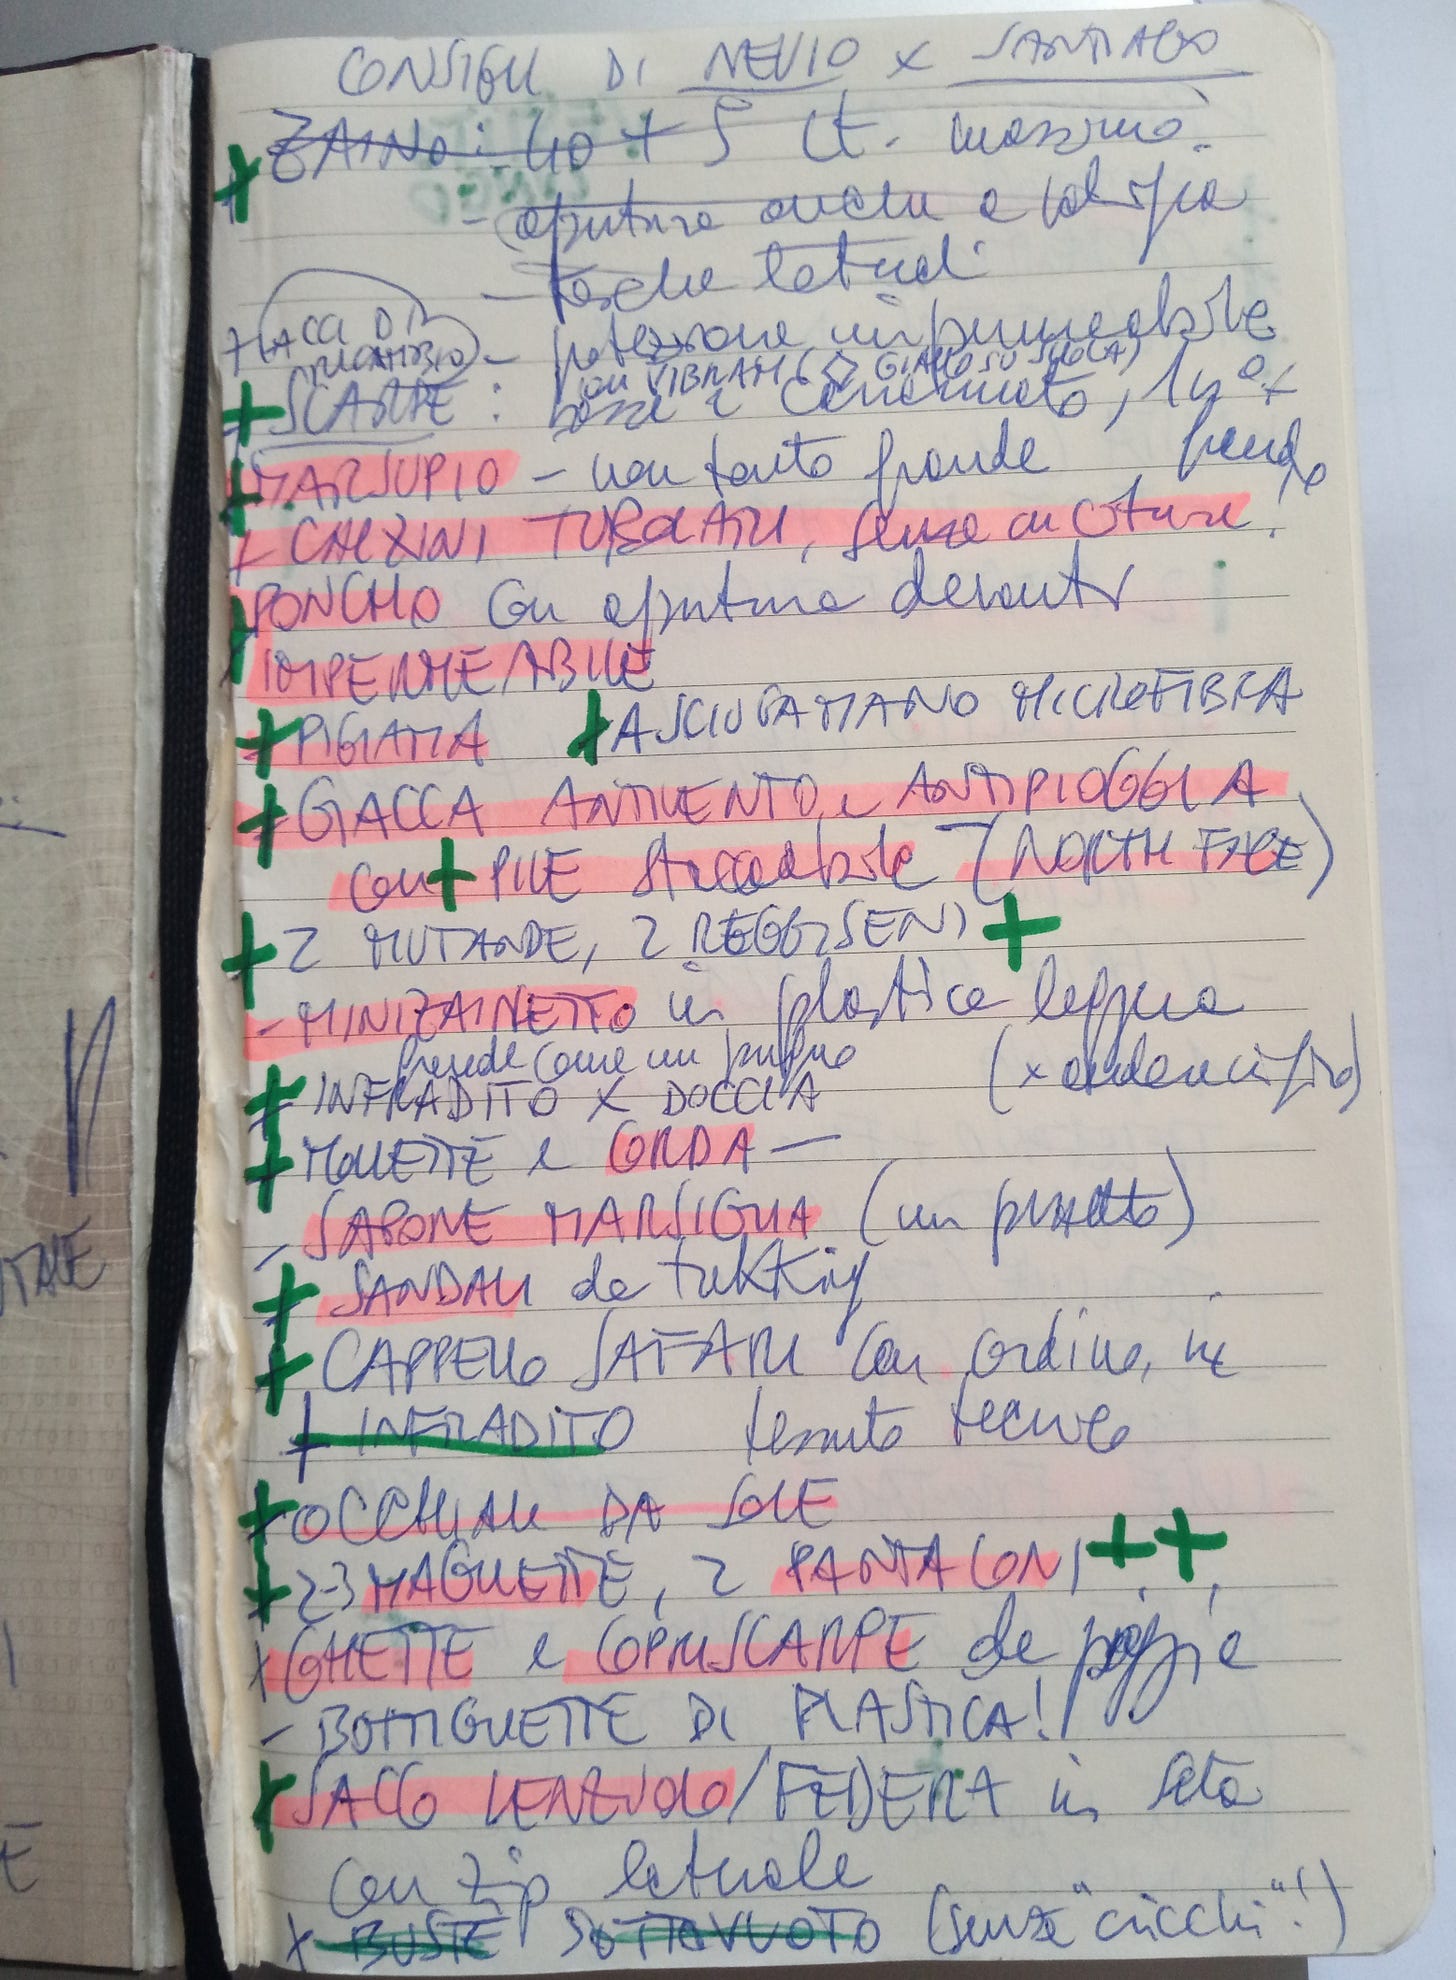 CONSIGLI DI NEVIO x SANTIAGO
+ ZAINO: 40 + 5 lt. massimo.
- apertura anche a valigia
- tasche laterali
+ LACCI DI RICAMBIO - protezione impermeabile
con VIBRAM (◇ GIALLO SU SUOLA)
+ SCARPE: collaudato, 1 n° +
grande
+ MARSUPIO - non tanto grande
+ CALZINI TUBOLARI, senza cuciture!
+ PONCHO con apertura davanti
+ IMPERMEABILE
+ PIGIAMA + ASCIUGAMANO MICROFIBRA
+ GIACCA ANTIVENTO e ANTIPIOGGIA
con + PILE staccabile - (NORTH FACE)
+ 2 MUTANDE, 2 REGGISENI +
- MINIZAINETTO in plastica leggera
prende come un pugno (x andare in giro)
+ INFRADITO X DOCCIA
+ MOLLETTE e CORDA -
- SAPONE MARSIGLIA (un pezzetto)
+ SANDALI da trekking
+ CAPPELLO SAFARI con cordino, in
+ INFRADITO tessuto tecnico
+ OCCHIALI DA SOLE
+ 2-3 MAGLIETTE, 2 PANTALONI + +
x GHETTE e COPRISCARPE da pioggia
- BOTTIGLIETTE DI PLASTICA!
+ SACCO LENZUOLO/FEDERA in seta
con zip laterale
x BUSTE SOTTOVUOTO (senza "cricchi"!)
TALE